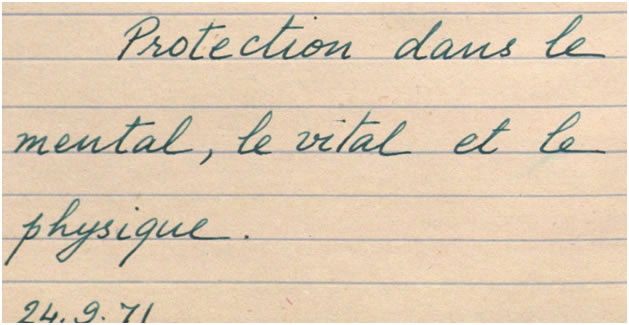 Protection dans le
mental, le vital et le
physique.
24.9.71